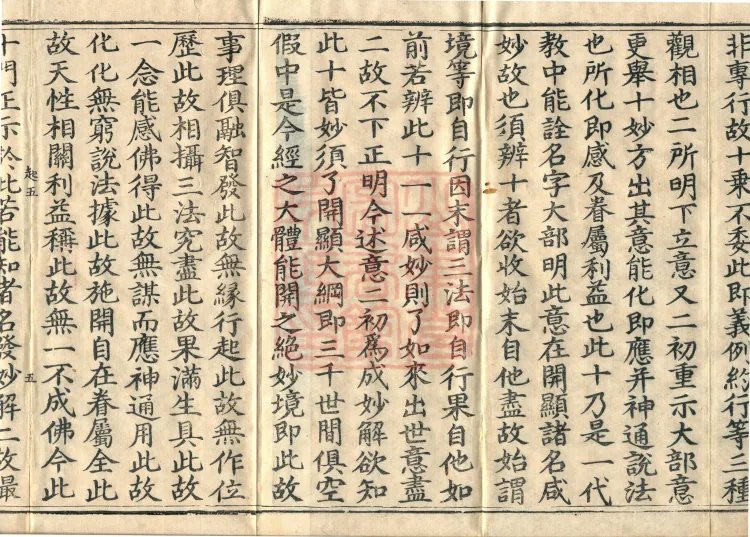 非專行故十乘不委此即義例約行等三種
觀相也二所明下立意又二初重示大部意
更舉十妙方出其意能化即應并神通說法
也所化即感及眷屬利益也此十乃是一代
教中能詮名字大部明此意在開顯諸名咸
妙故也須辨十者欲收始末自他盡故始謂
境等即自行因末謂三法即自行果自他如
前若辨此十一一咸妙則了如來出世意盡
二故不下正明今述意二初為成妙解欲知
此十皆妙須了開顯大綱即三千世間俱空
假中是今經之大體能開之絕妙境即此故
事理俱融智發此故無緣行起此故無作位
歷此故相攝三法究盡此故果滿生具此故
一念能感佛得此故無謀而應神通用此故
化化無窮說法據此故施開自在眷屬全此
故天性相關利益稱此故無一不成佛今此
起五
五
十門正示於此若能知者名發妙解二故最